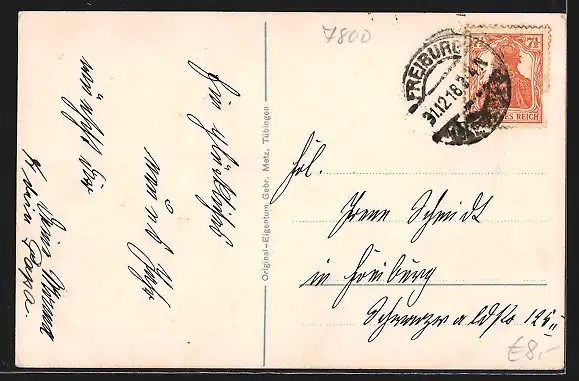 7800
FREIBURG
31.12.18.3-4N
7½
ES REICH
Ein glückliches
neues Jahr
wünscht dir
Deine Mama
& dein Papa.
Original-Eigentum Gebr. Metz, Tübingen
Frl.
Irene Schmidt
in Freiburg
Schwarzwaldstr 125
€8.-